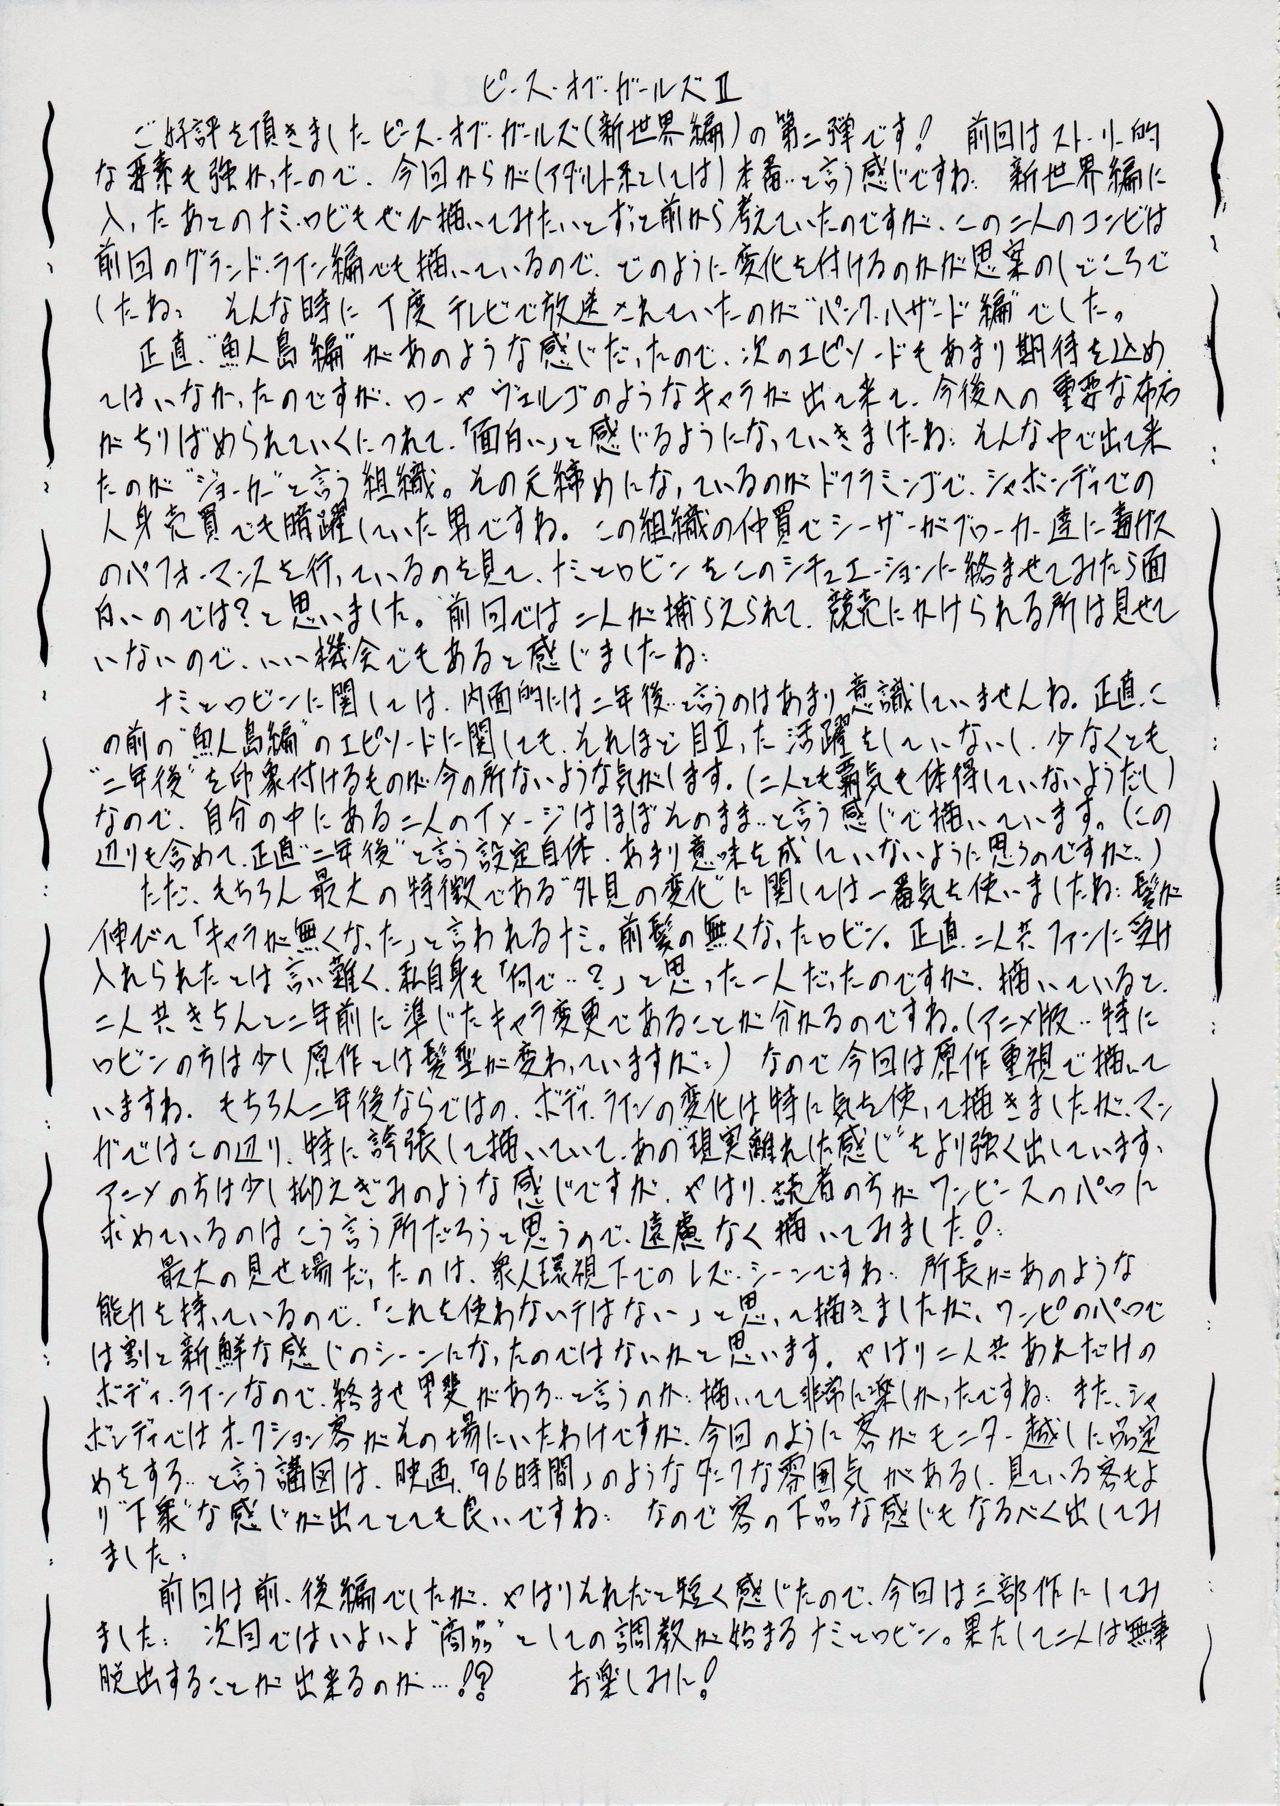 ピース・オブ・ガールズⅡ
ご好評を頂きましたピース・オブ・ガールズ(新世界編)の第二弾です! 前回はストーリー的
な要素も強かったので、今回からが(アダルト系としては)本番…と言う感じですね… 新世界編に
入ったあとのナミ・ロビもぜひ描いてみたいとずっと前から考えていたのですが、この二人のコンビは
前回のグランド・ライン編でも描いているので、どのように変化を付けるのかが思案のしどころで
したね… そんな時に丁度テレビで放送されていたのが"パンク・ハザード編"でした。
正直、"魚人島編"があのような感じだったので、次のエピソードもあまり期待を込め
てはいなかったのですが、ローやヴェルゴのようなキャラが出て来て、今後への重要な布石
がちりばめられていくにつれて、「面白い」と感じるようになっていきましたね… そんな中で出て来
たのが"ジョーカー"と言う組織。その元締めになっているのがドフラミンゴで、シャボンディでの
人身売買でも暗躍していた男ですね。この組織の仲買でシーザーがブローカー達に毒ガス
のパフォーマンスを行っているのを見て、ナミとロビンをこのシチュエーションに絡ませてみたら面
白いのでは?と思いました。前回では二人が捕らえられて、競売にかけられる所は見せて
いないので、いい機会でもあると感じましたね…
ナミとロビンに関しては、内面的には二年後…と言うのはあまり意識していませんね。正直、こ
の前の"魚人島編"のエピソードに関しても、それほど目立った活躍をしていないし、少なくとも
"二年後"を印象付けるものが今の所ないような気がします。(二人とも覇気も体得していないようだし)
なので、自分の中にある二人のイメージはほぼそのまま…と言う感じで描いています。(この
辺りも含めて、正直"二年後"と言う設定自体、あまり意味を成していないように思うのですが…)
ただ、もちろん最大の特徴である"外見の変化"に関しては一番気を使いましたね… 髪が
伸びて「キャラが無くなった」と言われるナミ。前髪の無くなったロビン。正直、二人共ファンに受け
入れられたとは言い難く、私自身も「何で…?」と思った一人だったのですが、描いていると、
二人共きちんと二年前に準じたキャラ変更であることが分かるのですね。(アニメ版…特に
ロビンの方は少し原作とは髪型が変わっていますが…) なので今回は原作重視で描いて
いますね。もちろん二年後ならではの、ボディ・ラインの変化は特に気を使って描きましたが、マン
ガではこの辺り、特に誇張して描いていて、あの"現実離れした感じ"をより強く出しています。
アニメの方は少し抑えぎみのような感じですが、やはり、読者の方がワンピースのパロに
求めているのはこう言う所だろうと思うので、遠慮なく描いてみました!
最大の見せ場だったのは、衆人環視下でのレズ・シーンですね… 所長があのような
能力を持っているので、「これを使わないテはない」と思って描きましたが、ワンピのパロで
は割と新鮮な感じのシーンになったのではないかと思います。やはり二人共あれだけの
ボディ・ラインなので、絡ませ甲斐がある…と言うのか…描いてて非常に楽しかったですね… また、シャ
ボンディではオークション客がその場にいたわけですが、今回のように客がモニター越しに品定
めをする…と言う講図は、映画「96時間」のようなダークな雰囲気があるし、見ている客もよ
り"下衆"な感じが出てとても良いですね… なので客の下品な感じもなるべく出してみ
ました。
前回は前、後編でしたが、やはりそれだと短く感じたので、今回は三部作にしてみ
ました… 次回ではいよいよ"商品"としての調教が始まるナミとロビン。果たして二人は無事
脱出することが出来るのか…!? お楽しみに!